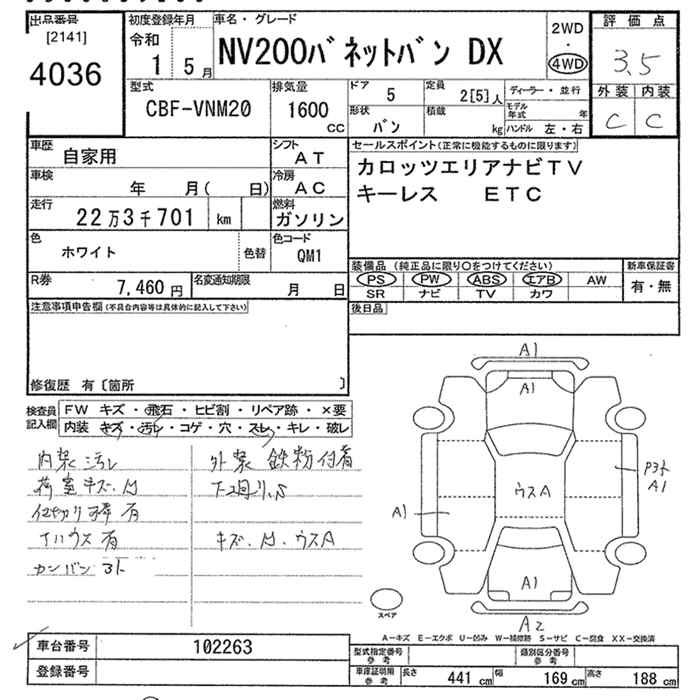 出品番号
[2141]
4036
初度登録年月
令和
1 5月
車名・グレード
NV200バネットバン DX
2WD
・
4WD
評価点
3.5
外装 内装
C C
型式
CBF-VNM20
排気量
1600
cc
ドア
5
定員
2[5]人
ディーラー・並行
形状
バン
積載
kg
モデル年式 年
ハンドル 左・右
車歴
自家用
シフト
AT
セールスポイント(正常に機能するものに限ります)
カロッツエリアナビTV
キーレス ETC
車検
年 月( 日)
冷房
AC
走行
22万3千701 km
燃料
ガソリン
色
ホワイト
色替
色コード
QM1
装備品 (純正品に限り○をつけてください)
新車保証書
PS PW ABS エアB AW
有・無
SR ナビ TV カワ
R券
7,460 円
名変通知期限
月 日
後日品
注意事項申告欄(不具合内容等は具体的に記入して下さい)
修復歴 有〔箇所 〕
検査員記入欄
FW キズ・飛石・ヒビ割・リペア跡・×要
内装 キズ・汚レ・コゲ・穴・スレ・キレ・破レ
内装汚レ
荷室キズ、凹
仕切り棒有
イハウス有
カンバン3ト
外装 鉄粉付着
下廻り、S
キズ、凹、ウスA
A1
A1
ウスA
P3ト
A1
A1
A1
A2
スペア
A-キズ E-エクボ U-凹み W-補修跡 S-サビ C-腐食 XX-交換済
車台番号
102263
登録番号
型式指定番号
参考
類別区分番号
参考
車庫証明用
参考
長さ 441 cm
幅 169 cm
高さ 188 cm